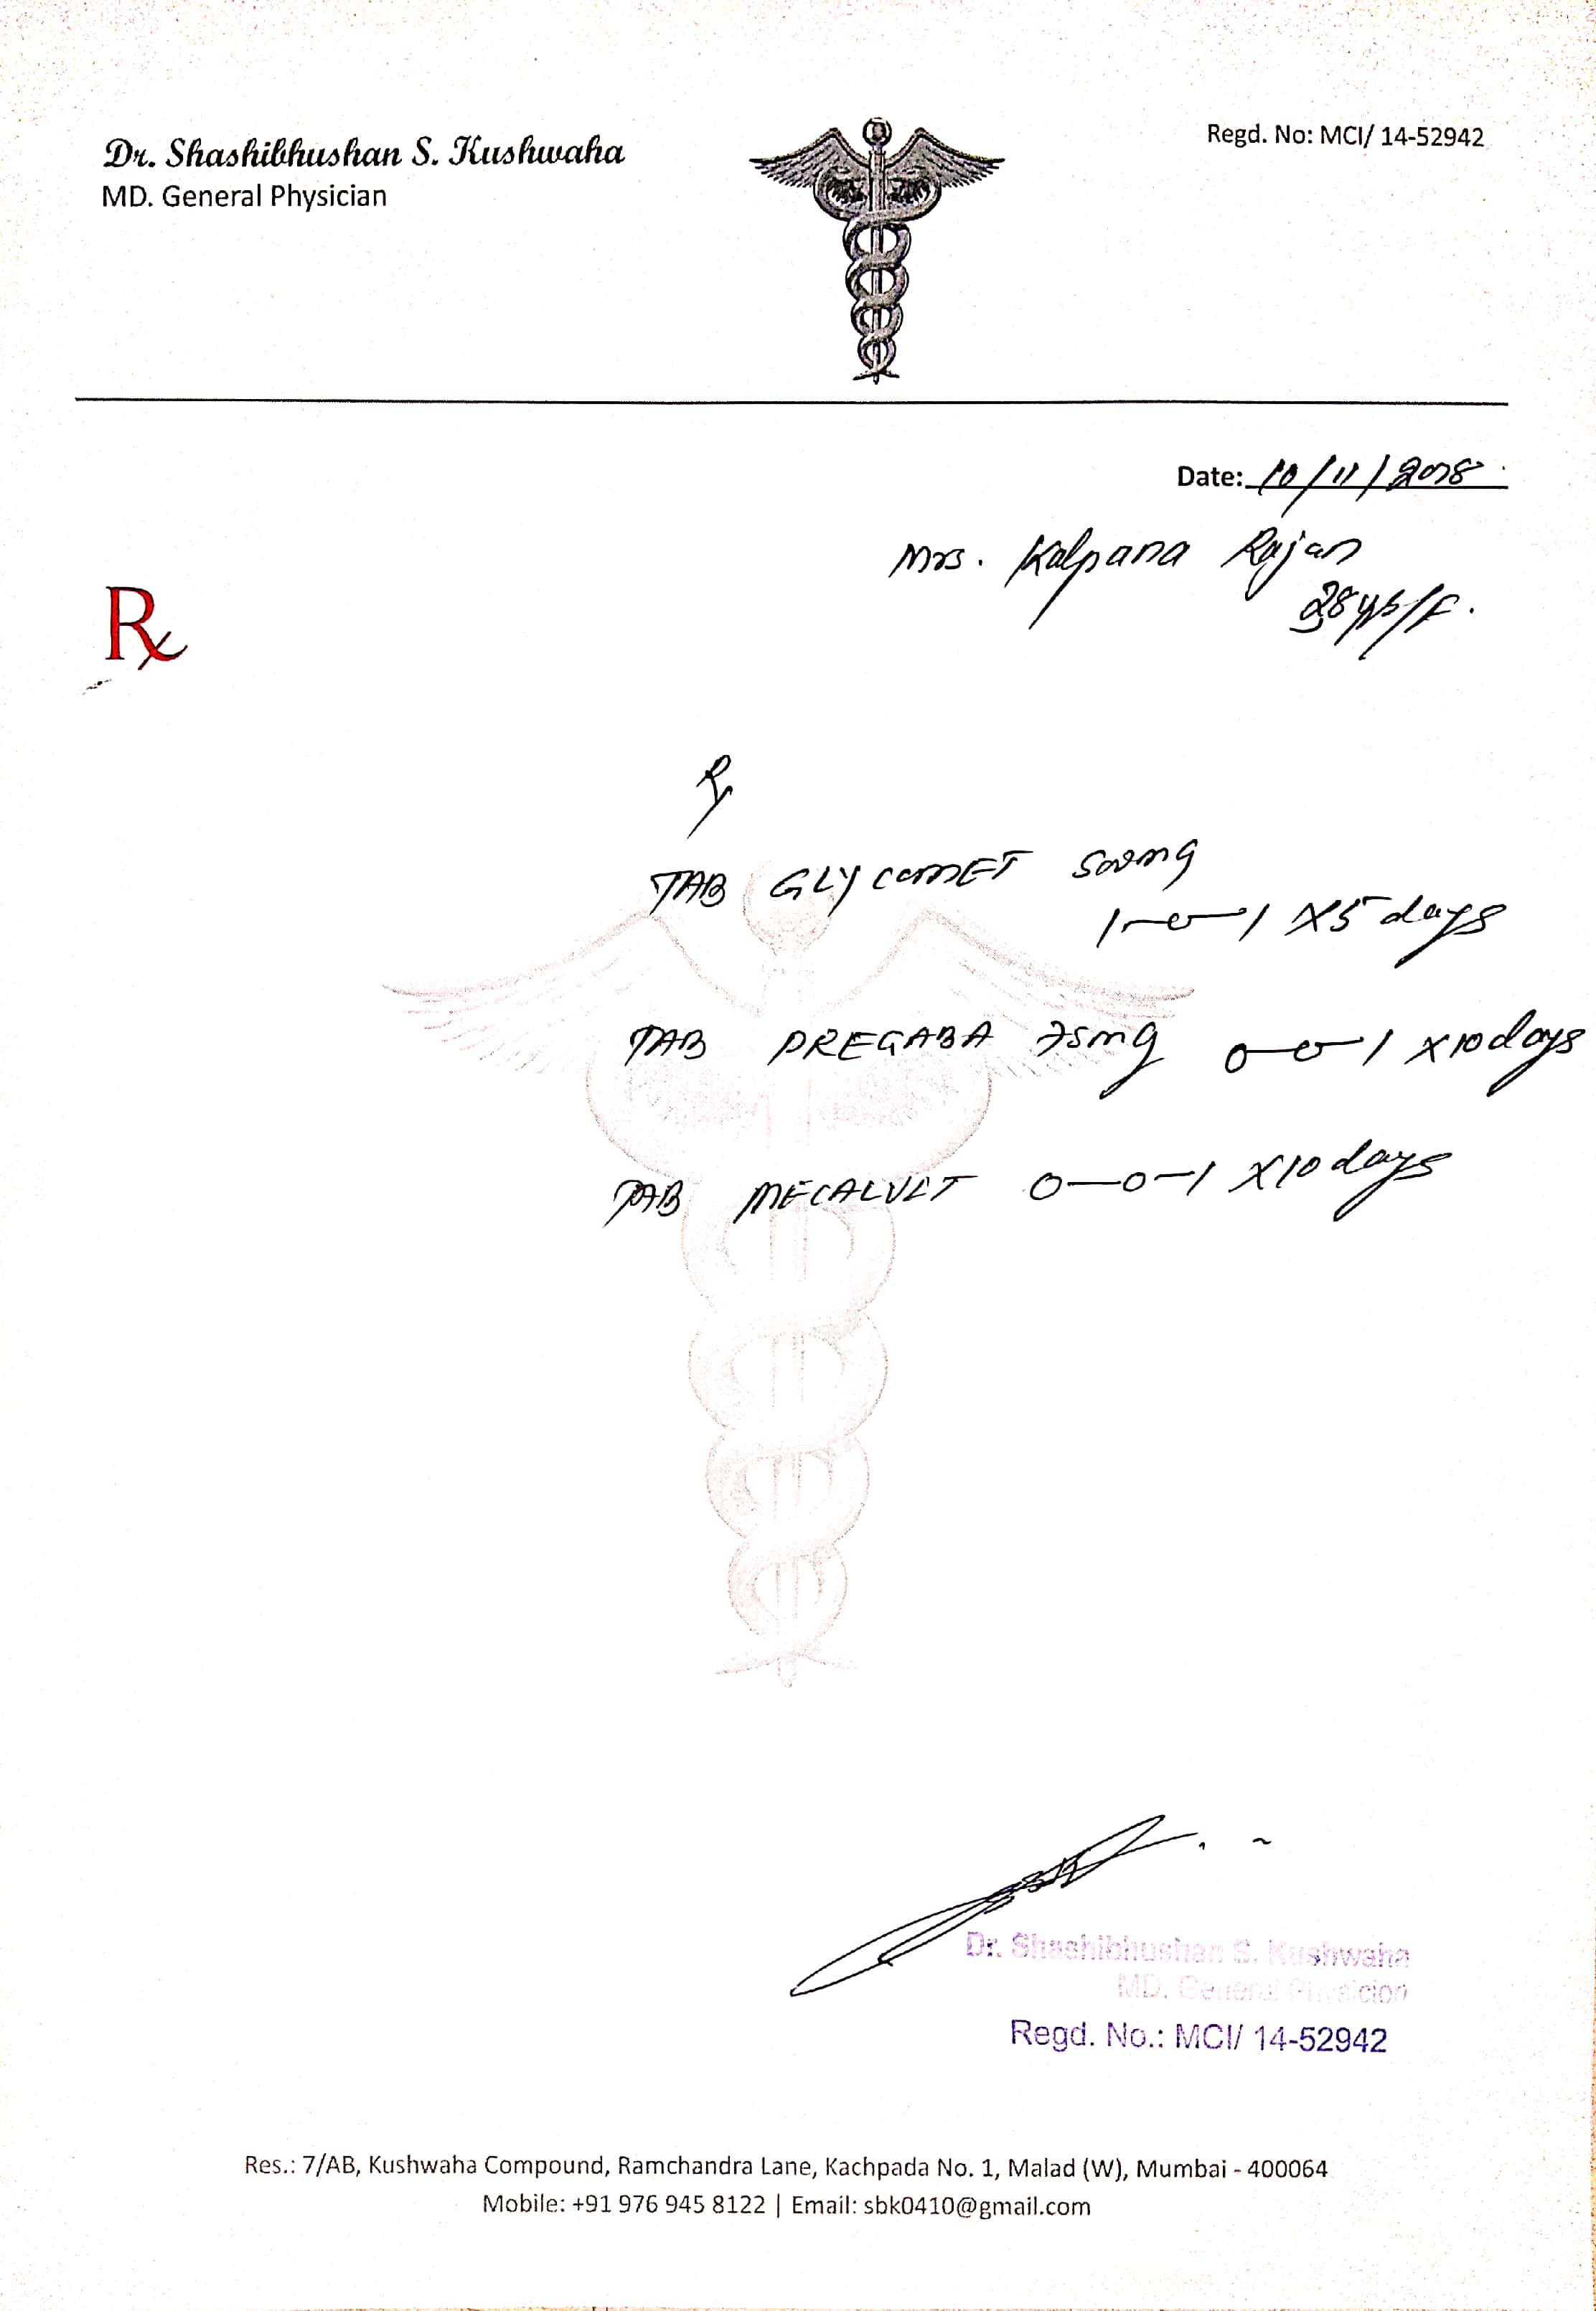 Dr. Shashibhushan S. Kushwaha
MD. General Physician
Regd. No: MCI/ 14-52942
Date: 10/11/2018
Mrs. Kalpana Rajan
38 yrs/F.
Rx
Rx
TAB GLYCOMET 500mg
1-0-1 X5 days
TAB PREGABA 75mg 0-0-1 X10 days
TAB 0-0-1 X10 days
Dr. Shashibhushan S. Kushwaha
MD. General Physician
Regd. No.: MCI/ 14-52942
Res.: 7/AB, Kushwaha Compound, Ramchandra Lane, Kachpada No. 1, Malad (W), Mumbai - 400064
Mobile: +91 976 945 8122 | Email: sbk0410@gmail.com